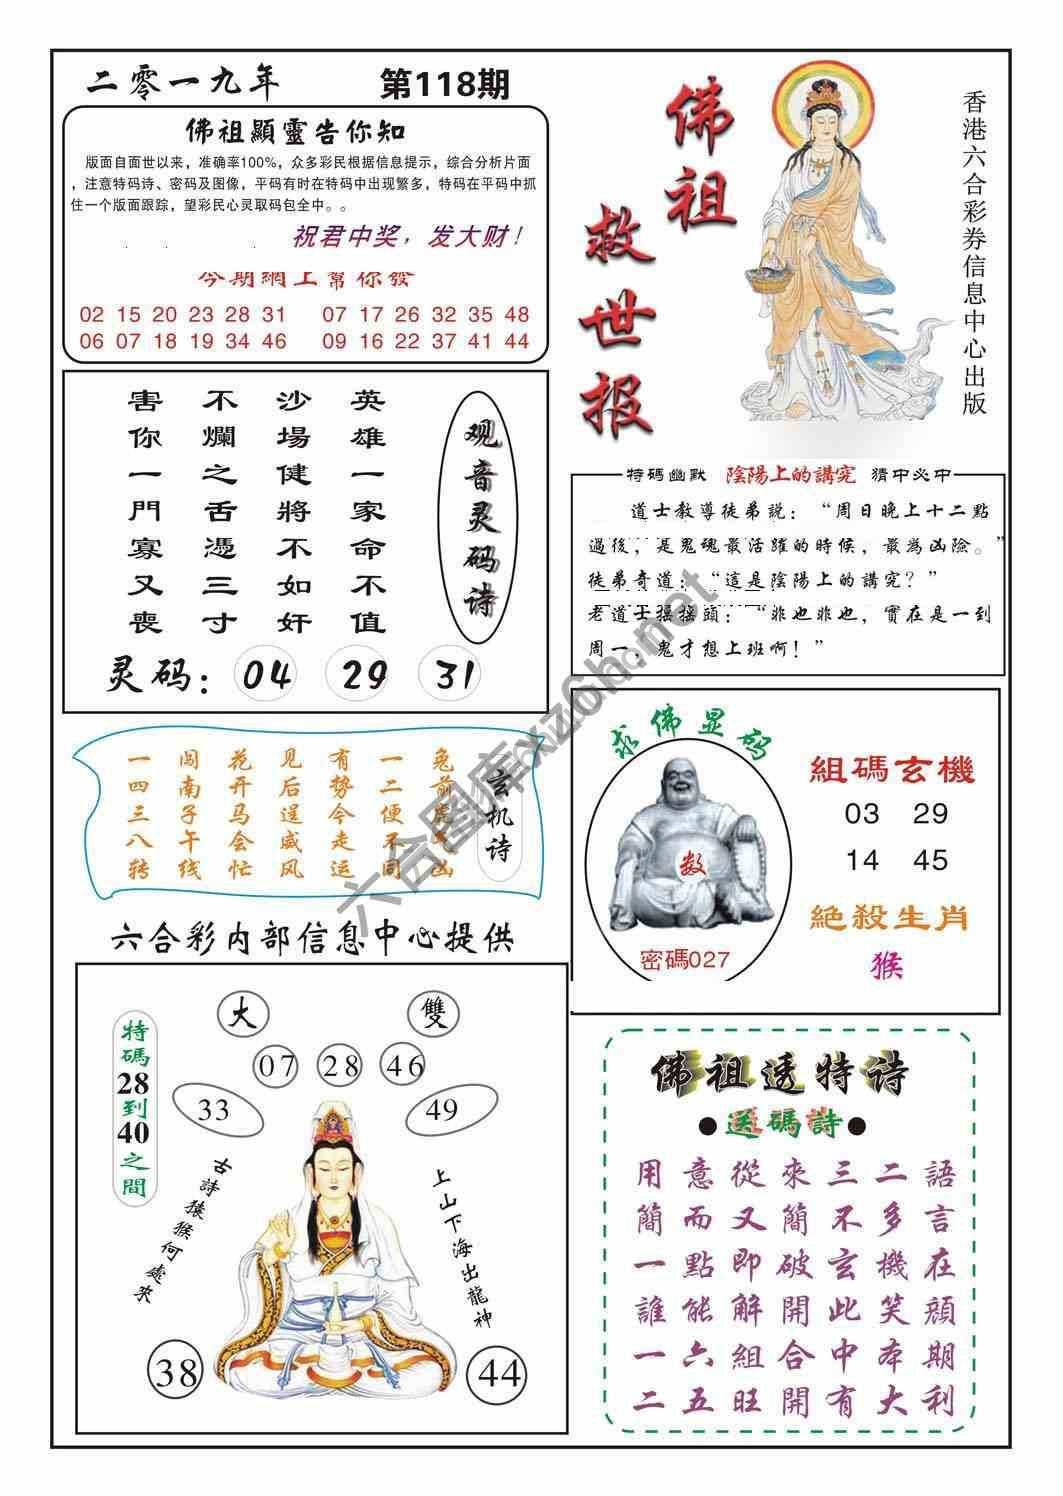 二零一九年
第118期
佛祖顯靈告你知
版面自面世以来，准确率100%，众多彩民根据信息提示，综合分析片面
，注意特码诗、密码及图像，平码有时在特码中出现繁多，特码在平码中抓
住一个版面跟踪，望彩民心灵取码包全中。。
祝君中奖，发大财！
今期網上幫你發
02 15 20 23 28 31 07 17 26 32 35 48
06 07 18 19 34 46 09 16 22 37 41 44
佛祖
救世报
香港六合彩券信息中心出版
观音灵码诗
英雄一家命不值
沙場健將不如奸
不爛之舌憑三寸
害你一門寡又喪
灵码： 04 29 31
特碼幽默 陰陽上的講究 猜中必中
道士教導徒弟説：“周日晚上十二點
過後，是鬼魂最活躍的時候，最為凶險。”
徒弟奇道：“這是陰陽上的講究？”
老道士摇摇頭：“非也非也，實在是一到
周一，鬼才想上班啊！”
玄机诗
兔前虎后凶
一二便不同
有势今走运
见后逞威风
花开马会忙
闯南子午线
一四三八转
求佛显码
数
密碼027
組碼玄機
03 29
14 45
絕殺生肖
猴
六合彩内部信息中心提供
大 雙
07 28 46
33 49
特碼28到40之間
古詩猿猴何處來
上山下海出龍神
38 44
佛祖透特诗
●送碼詩●
用意從來三二語
簡而又簡不多言
一點即破玄機在
誰能解開此笑顔
一六組合中本期
二五旺開有大利
六合图库xz6h.net